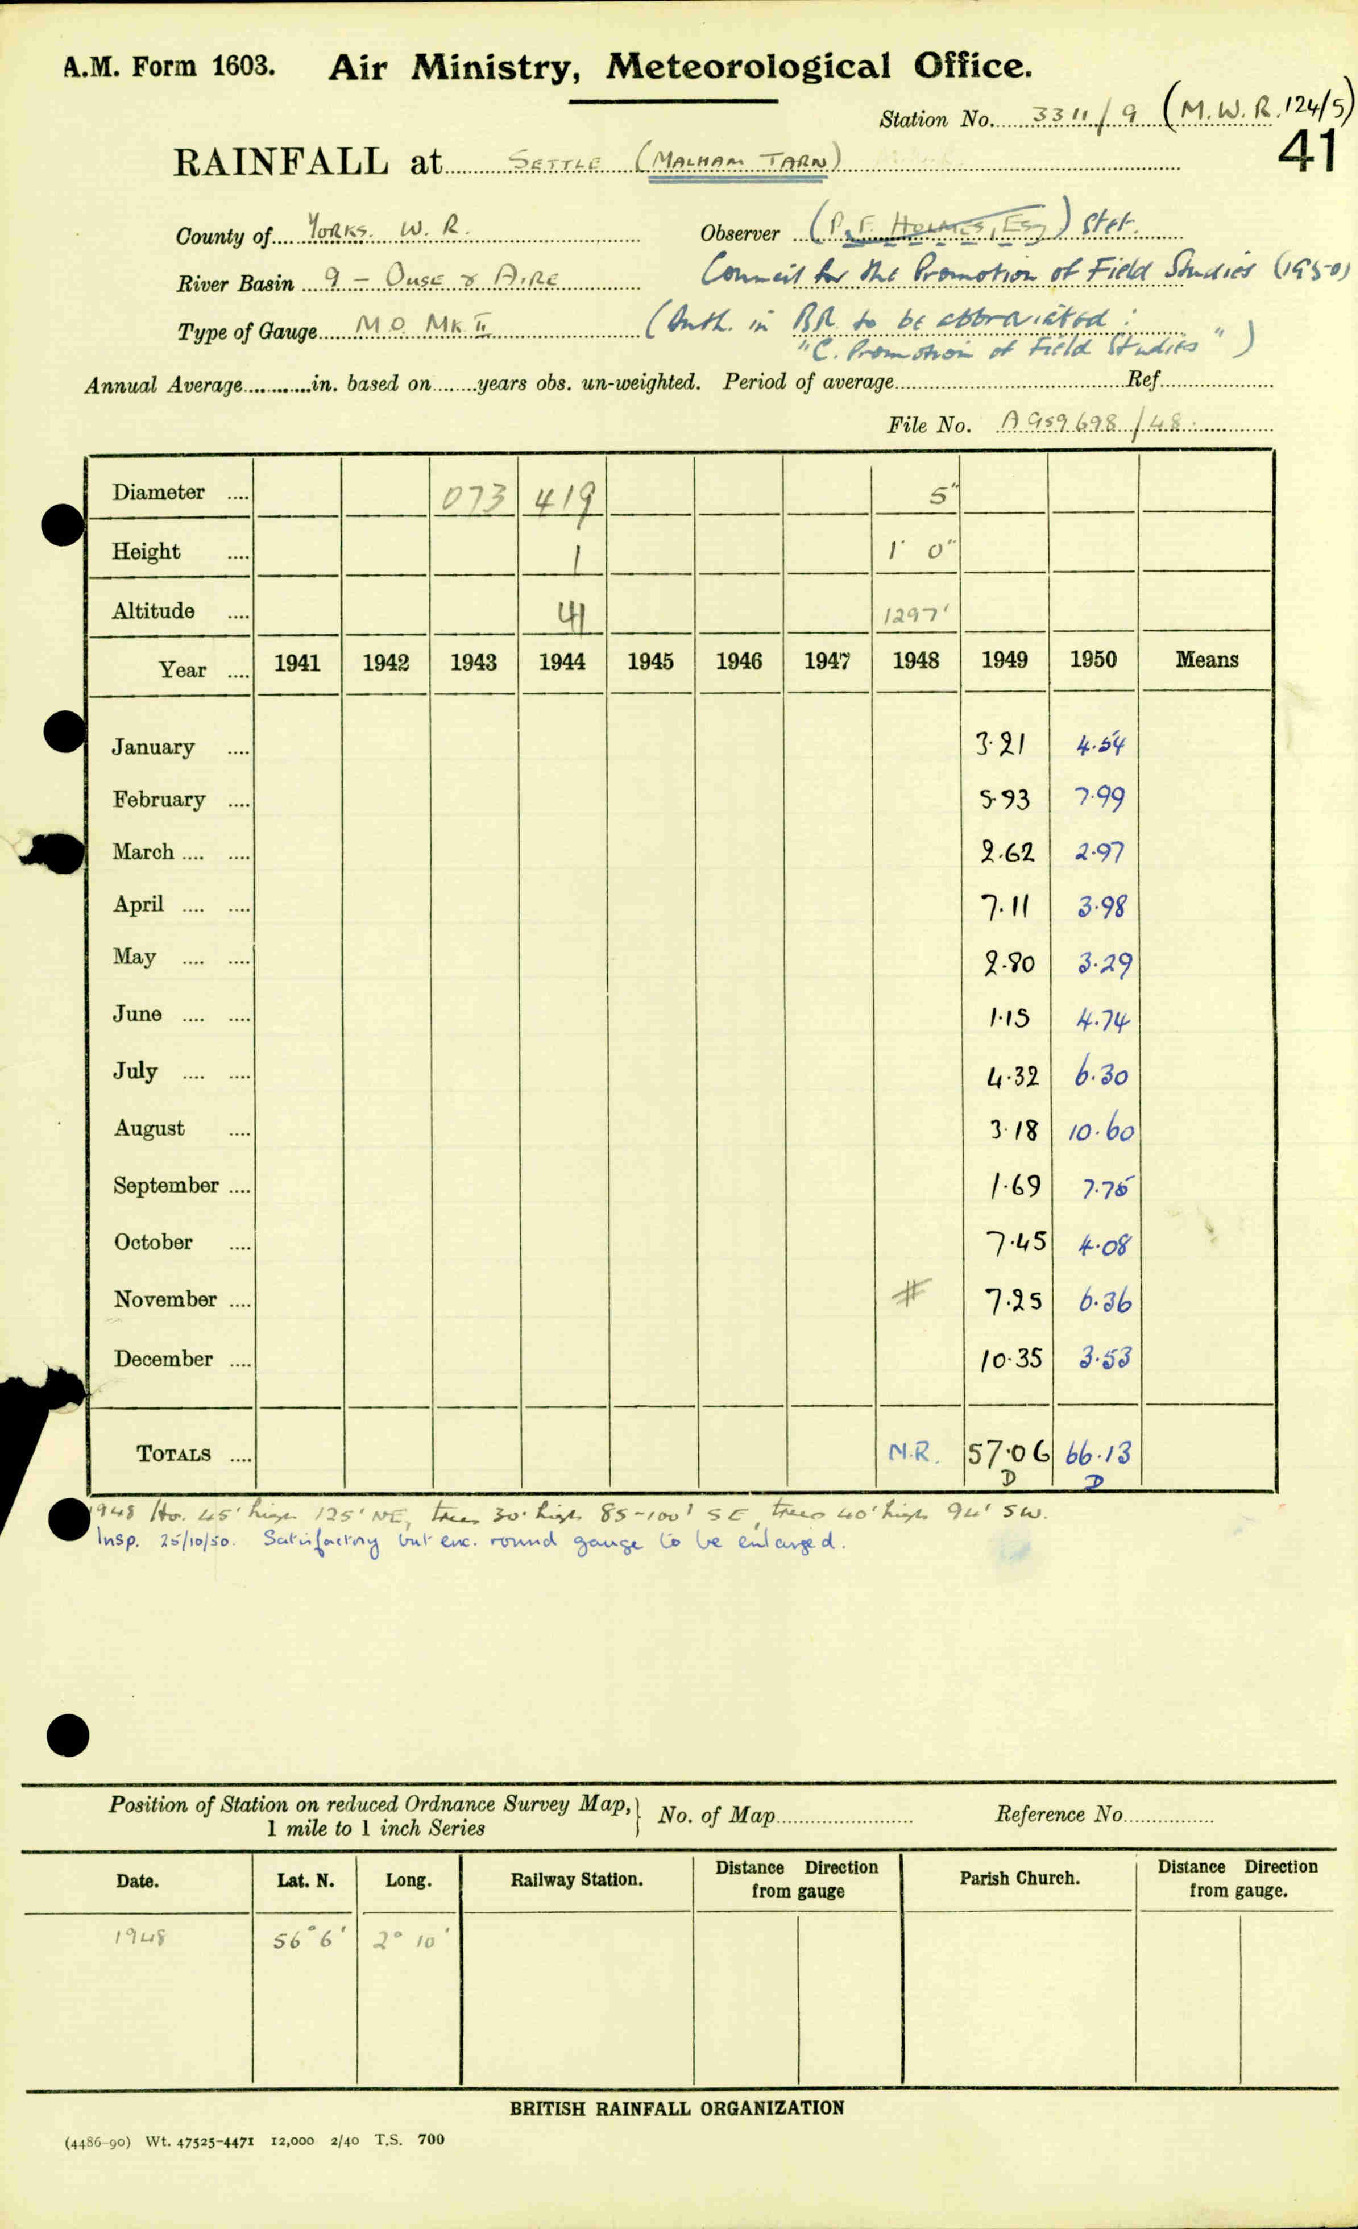 A.M. Form 1603. Air Ministry, Meteorological Office.
Station No. 3311/9 (M.W.R. 124/5)
41
RAINFALL at SETTLE (MALHAM TARN)
County of YORKS. W. R. Observer (P. F. HOLMES, ESq) Stet.
River Basin 9 - OUSE & AIRE Council for the Promotion of Field Studies (1950)
Type of Gauge M O MK II (Auth. in BR to be abbreviated :
"C. Promotion of Field Studies")
Annual Average in. based on years obs. un-weighted. Period of average Ref
File No. A959698/48
Diameter 073 419 5"
Height 1 1' 0"
Altitude 41 1297'
Year 1941 1942 1943 1944 1945 1946 1947 1948 1949 1950 Means
January 3.21 4.54
February 5.93 7.99
March 2.62 2.97
April 7.11 3.98
May 2.80 3.29
June 1.15 4.74
July 4.32 6.30
August 3.18 10.60
September 1.69 7.75
October 7.45 4.08
November # 7.25 6.36
December 10.35 3.53
TOTALS N.R. 57.06 66.13
D D
1948 Ho. 45' high 125' NE, trees 30' high 85-100' SE, trees 40' high 94' SW.
Insp. 25/10/50. Satisfactory but enc. round gauge to be enlarged.
Position of Station on reduced Ordnance Survey Map, No. of Map Reference No.
1 mile to 1 inch Series
Date. Lat. N. Long. Railway Station. Distance Direction from gauge Parish Church. Distance Direction from gauge.
1948 56° 6' 2° 10'
BRITISH RAINFALL ORGANIZATION
(4486-90) Wt. 47525-4471 12,000 2/40 T.S. 700